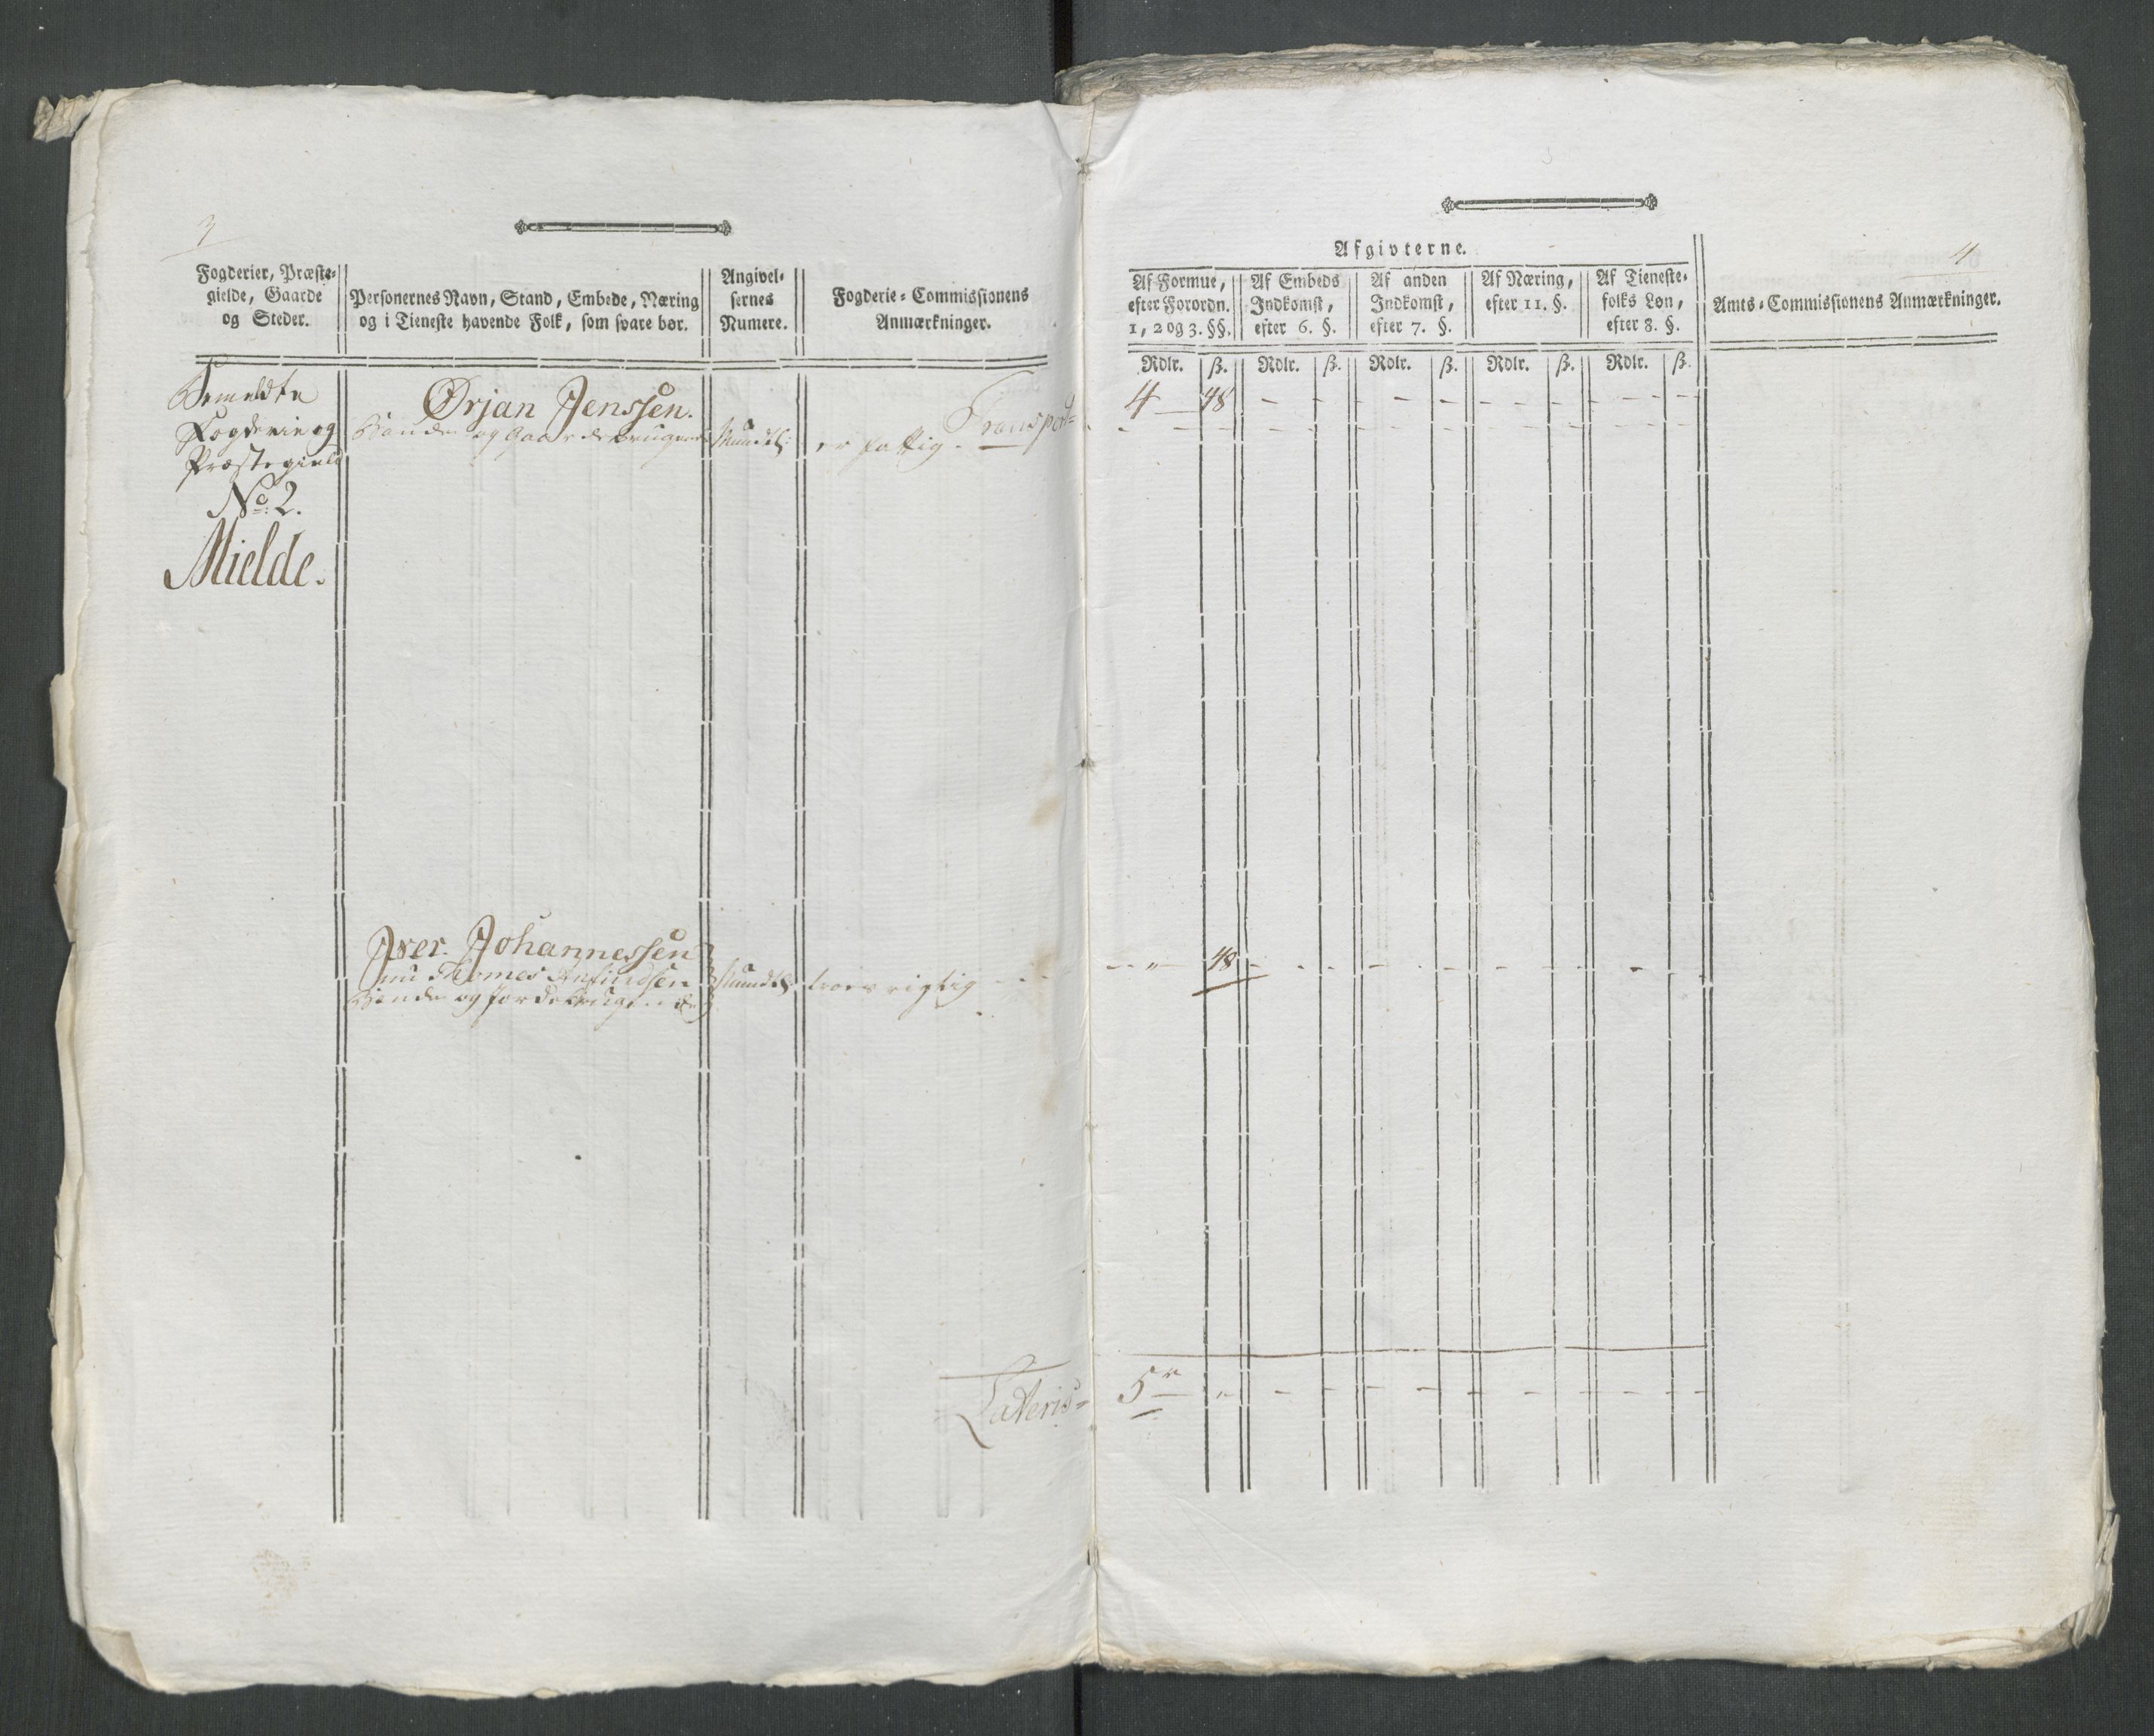 3
Fogderier, Præste-
gielde, Gaarde
og Steder.
Personernes Navn, Stand, Embede, Næring
og i Tieneste havende Folk, som svare bør.
Angivel-
sernes
Numere.
Fogderie-Commissionens
Anmærkninger.
Bemeldte
Fogderie og
Præstegield
No. 2.
Mielde.
Ørjan Jenssen.
Bonde og Gaardebruger
Mundtl:
er fattig.
Transport
Iver Johannessen
nu Thomes
Bonde og Jordebrugende
Mundtl:
rigtig
Lateris
4
Afgivterne.
Af Formue,
efter Forordn.
1, 2 og 3. §§.
Af Embeds
Indkomst,
efter 6. §.
Af anden
Indkomst,
efter 7. §.
Af Næring,
efter 11. §.
Af Tieneste-
folks Løn,
efter 8. §.
Amts-Commissionens Anmærkninger.
Rdlr. ß. Rdlr. ß. Rdlr. ß. Rdlr. ß. Rdlr. ß.
4 48 - - - - - - - -
- - - - - - - - - -
- " 48 - - - - - - - -
5 " - - - - - - - -